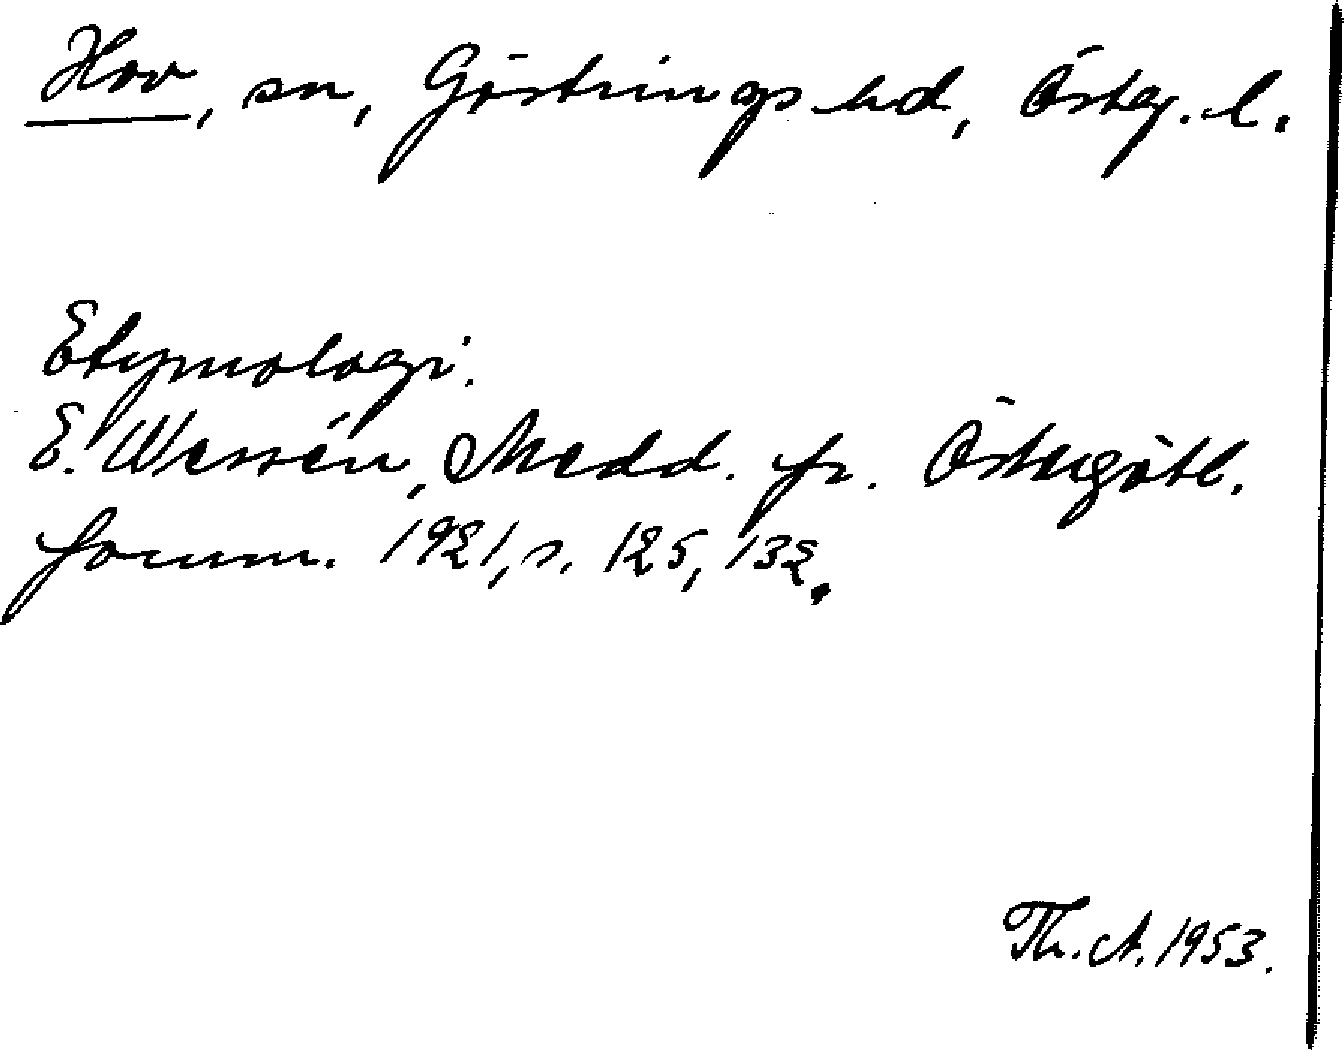 Hov, sn, Göstrings hd, Östg. l.
Etymologi.
E. Wessén, Medd. fr. Östergötl.
fornm. 1921, s. 125, 132.
Th. A. 1953.